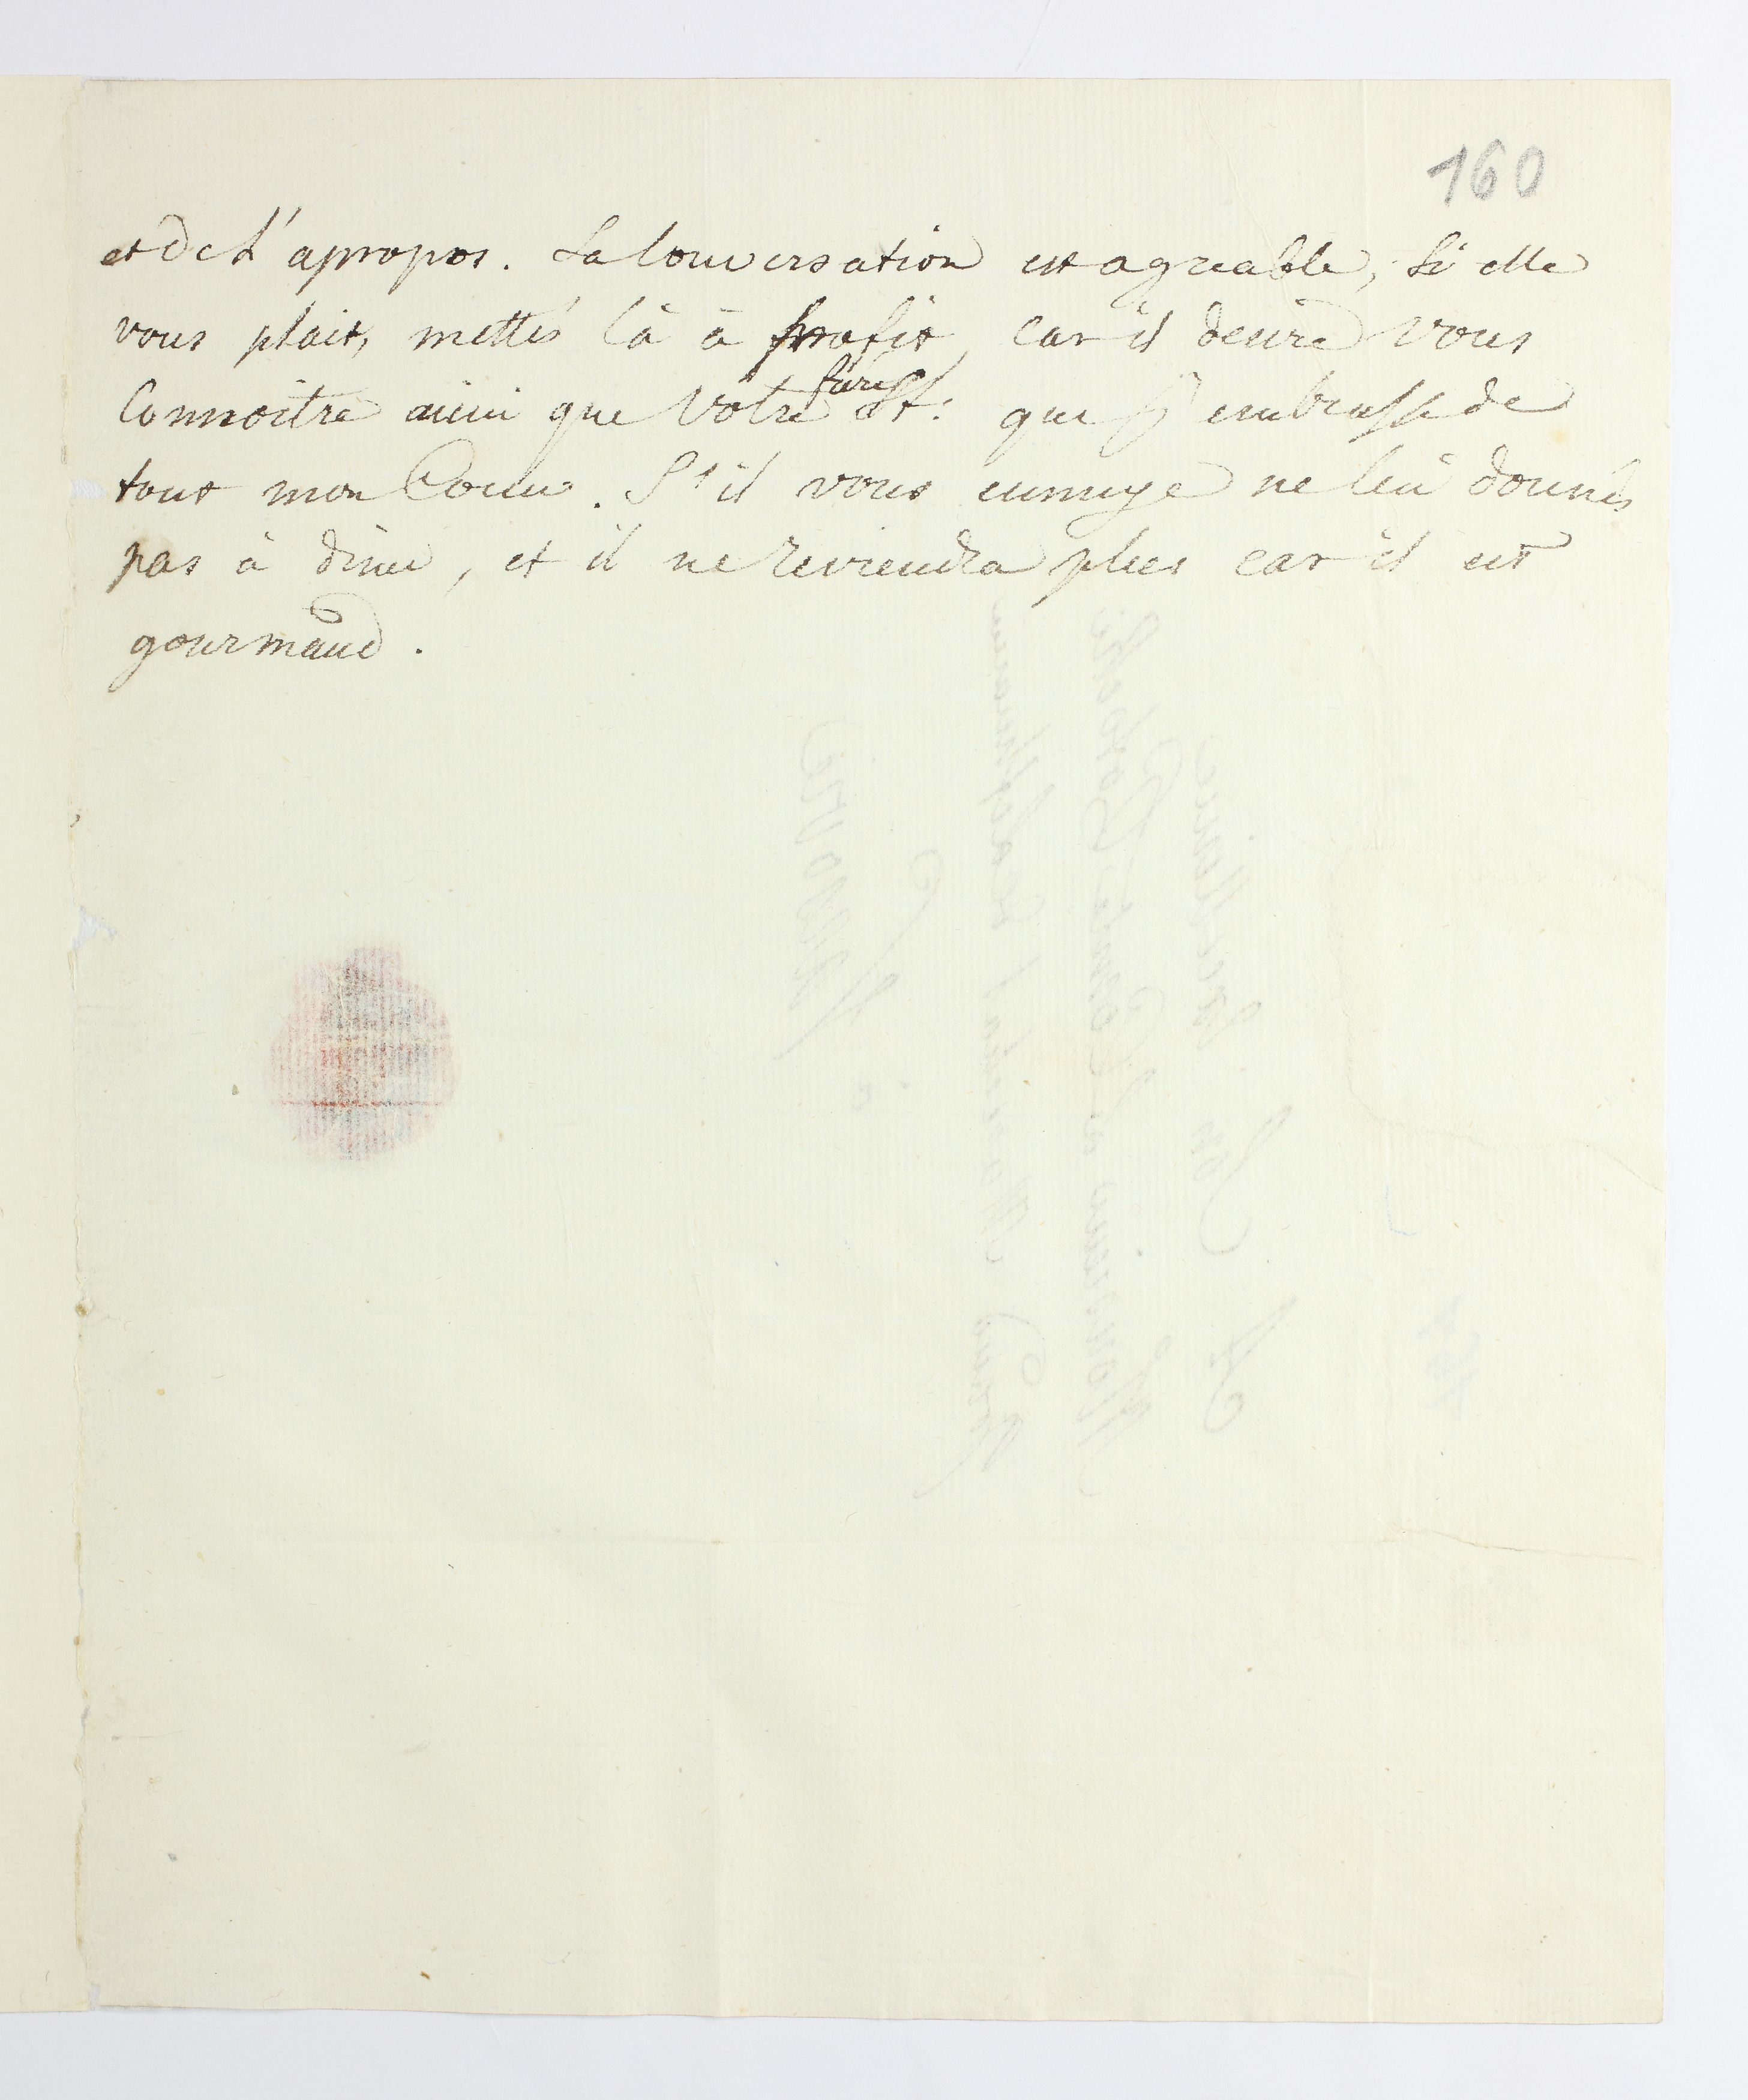 160
et de l'apropos. La Conversation est agreable, Si elle
vous plait, mettés là à profit, car il desire vous
Connoitre ainsi que Votre frère St: que j'embrasse de
tout mon Coeur. S'il vous ennuye ne lui donnés
pas à diner, et il ne reviendra plus car il est
gourmand.